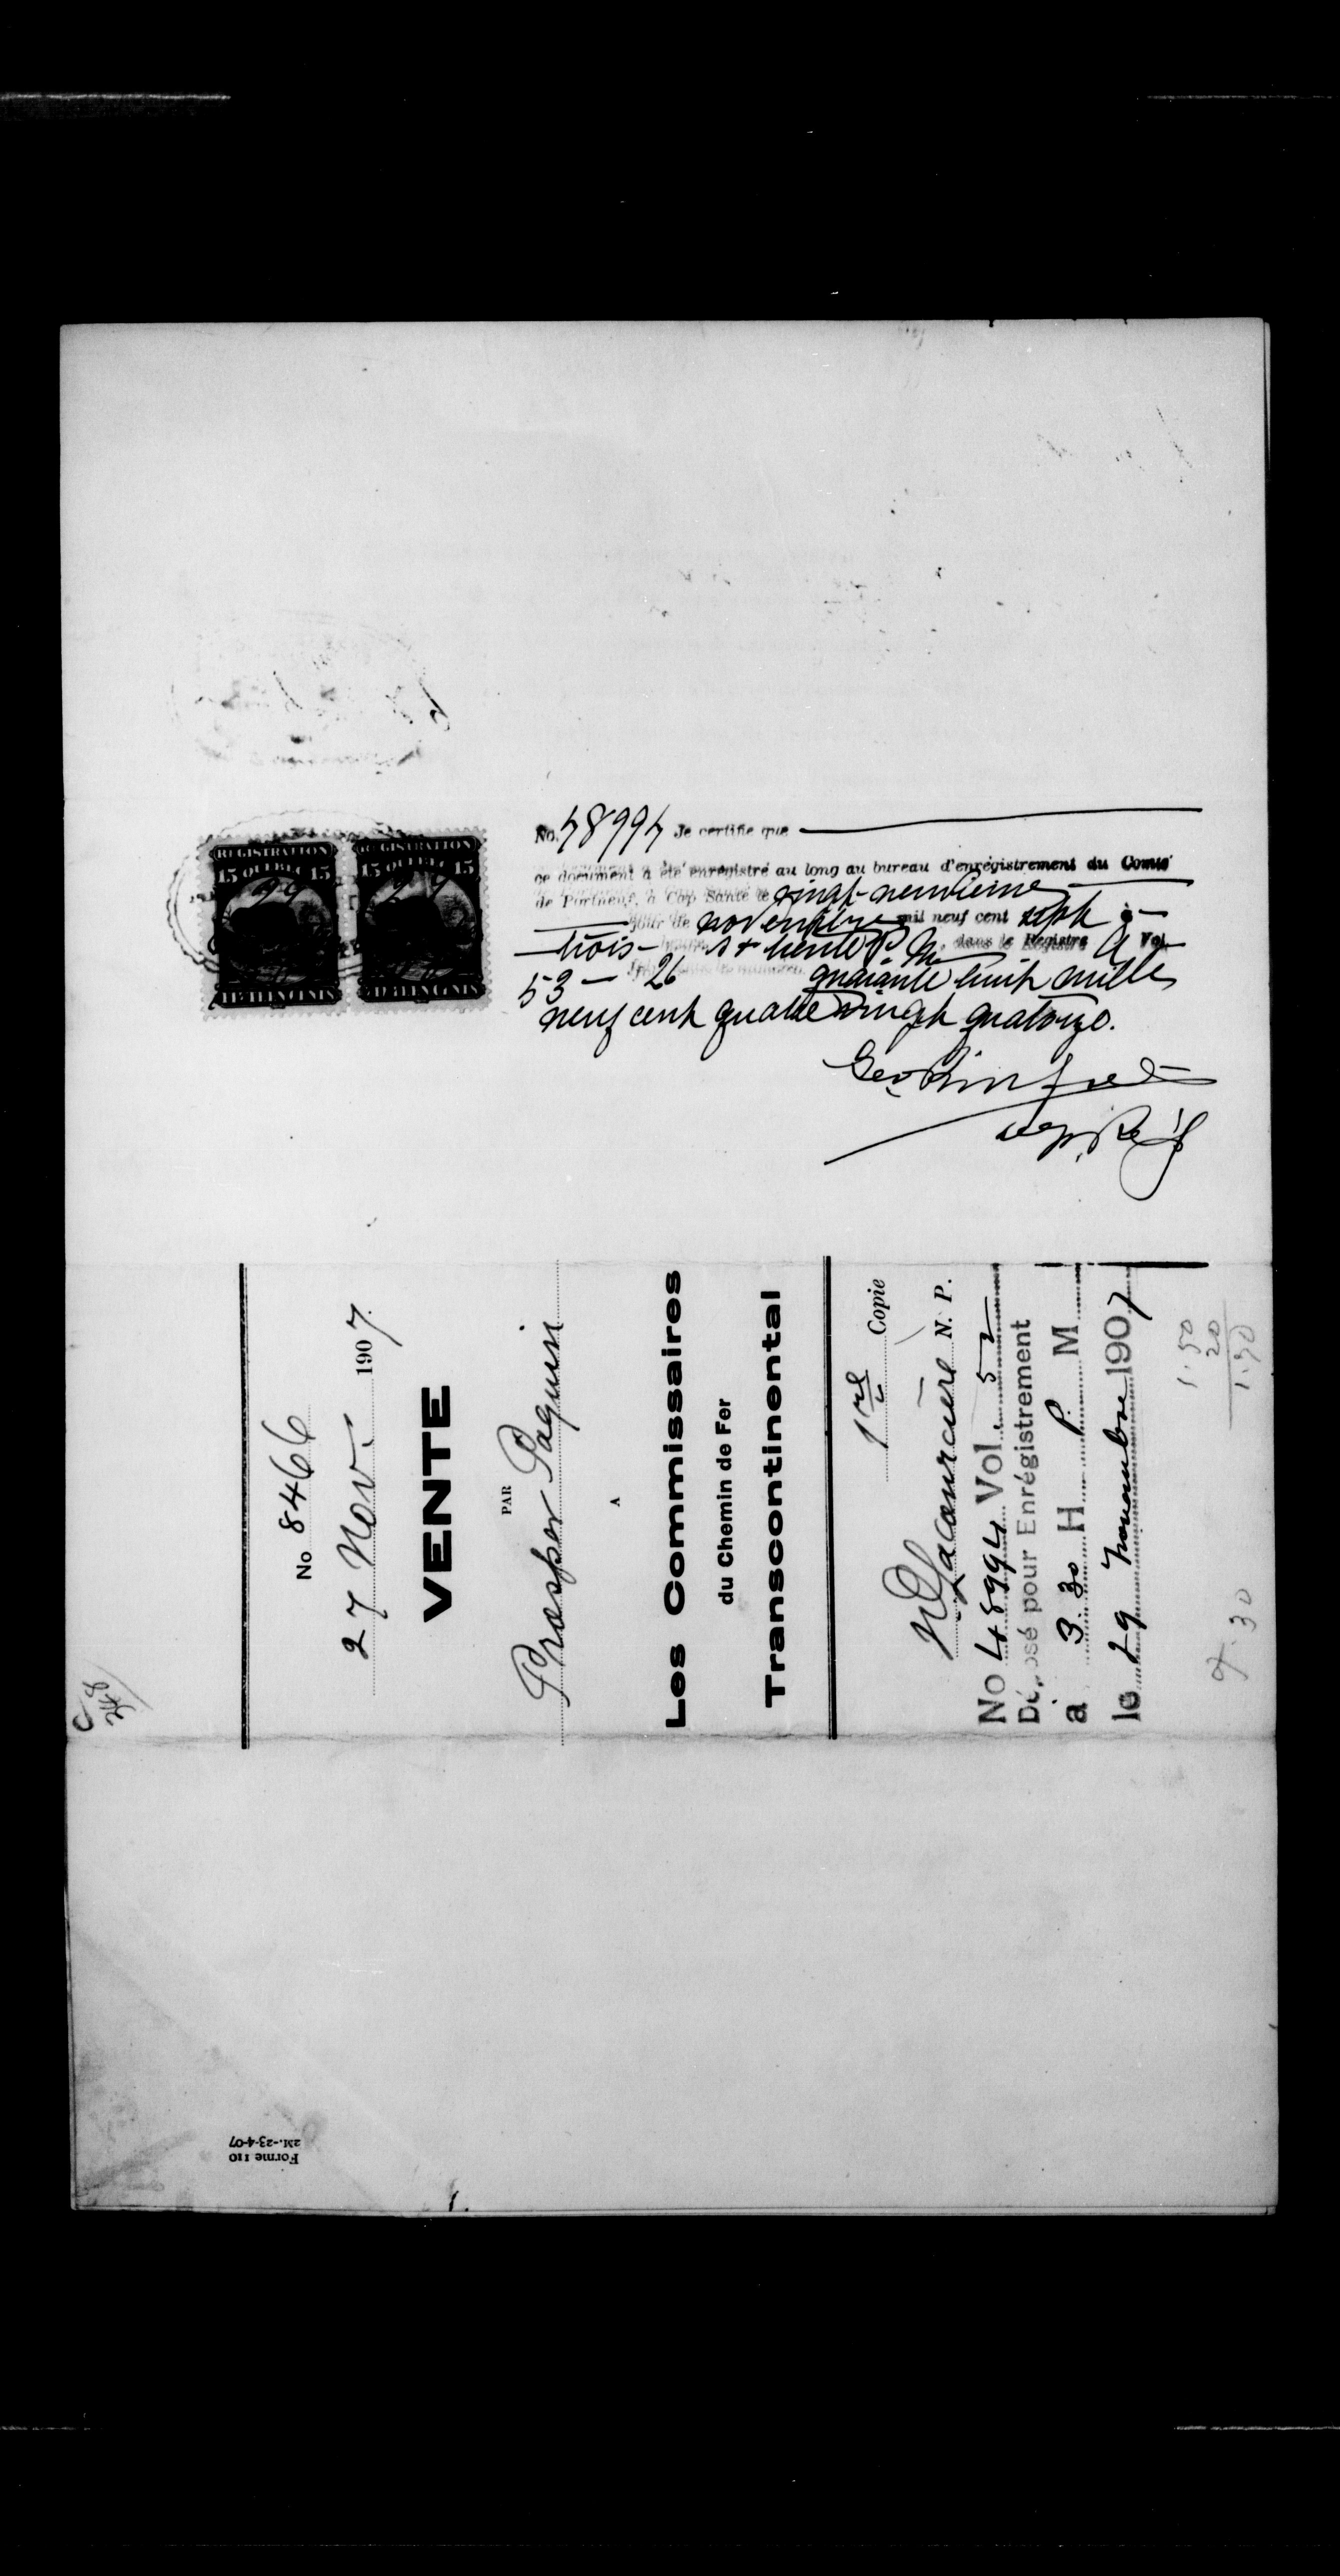 REGISTRATION
15 QUEBEC 15
FIFTEEN CENTS
REGISTRATION
15 QUEBEC 15
FIFTEEN CENTS
No. 48994 Je certifie que
ce document a été enregistré au long au bureau d'enrégistrement du Comté
de Portneuf, à Cap Santé le vingt-neuvième
jour de novembre mil neuf cent sept à
trois heures & trente P. M. dans le Registre A Vol.
53 — 26 quarante huit mille
neuf cent quatre vingt quatorze.
Dep. Reg
C
No 8466
27 Nov. 1907.
VENTE
PAR
Prosper Paquin
A
Les Commissaires
du Chemin de Fer
Transcontinental
1re Copie
Lacourcière N. P.
No 48994 Vol. 52
Déposé pour Enrégistrement
a 3.30 H P. M
le 29 novembre 1907
1.50
20
1.70
30
Forme 110
2M.-23-4-07
1.